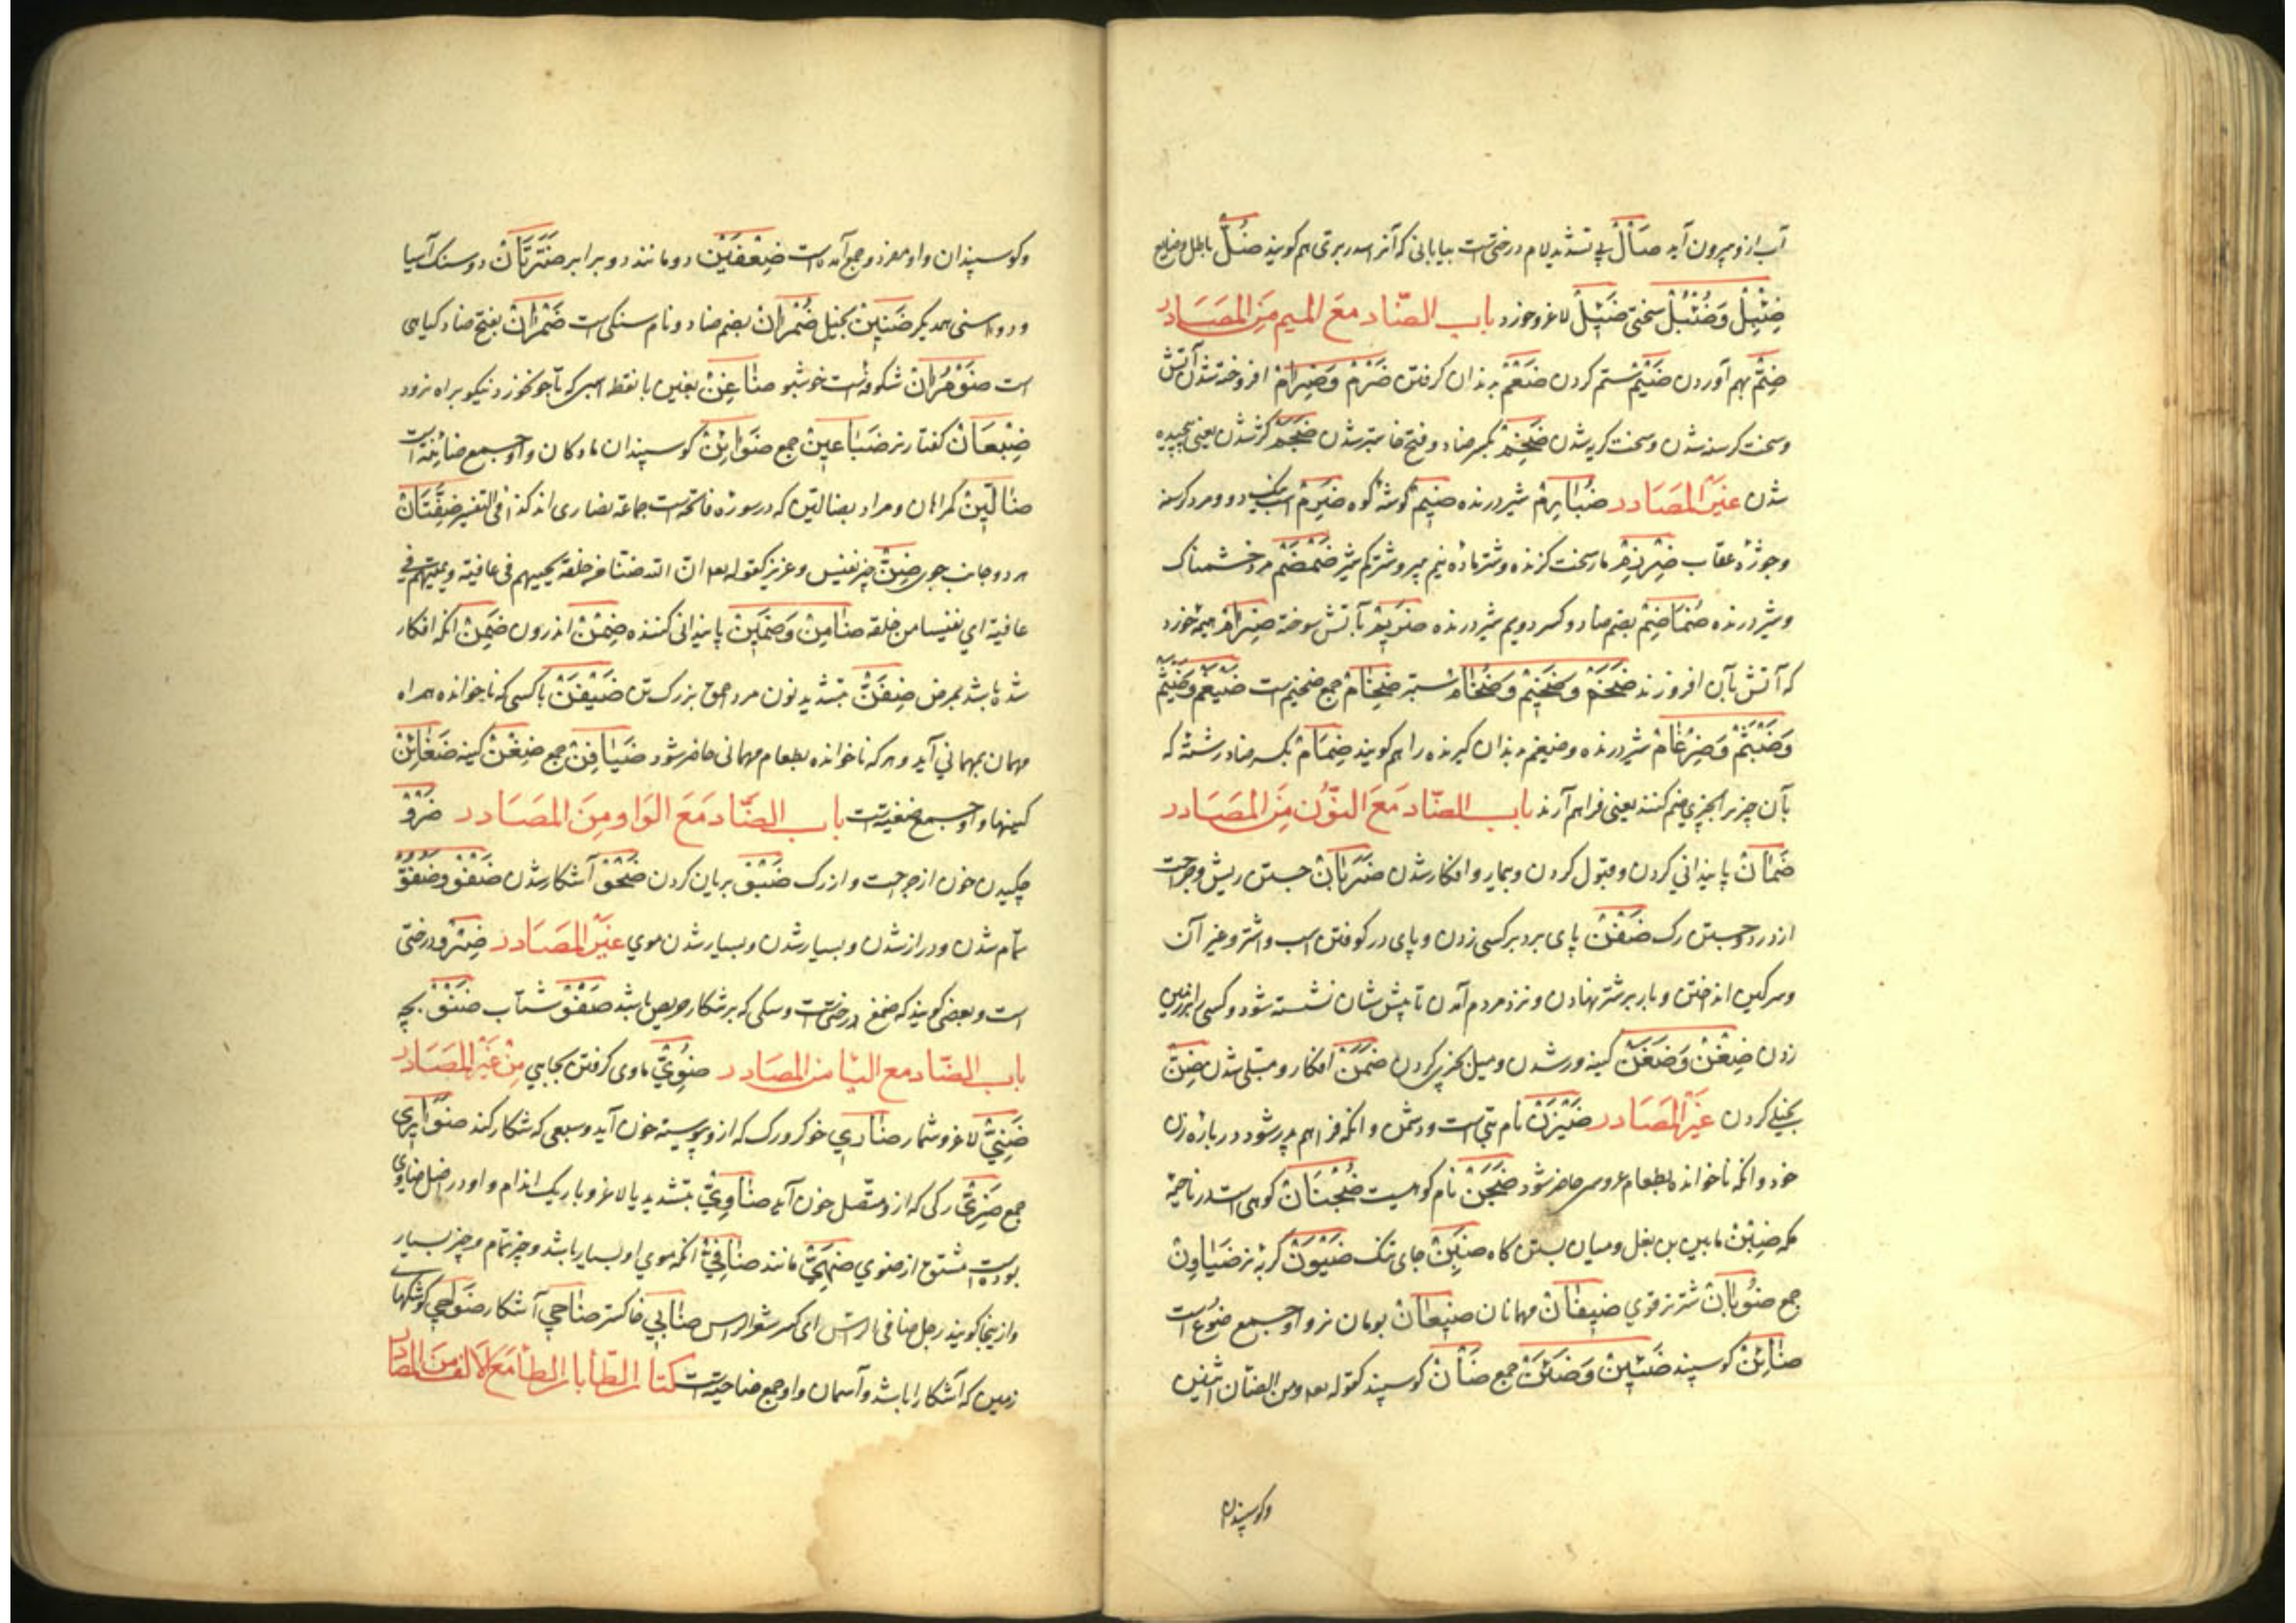 آب ازو بیرون آید ضَالٌ بی تشدید لام درختیست بیابانی که آنرا سدر بری هم گویند ضُلٌّ باطل و ضایع
ضِئْبِلْ وَضُئْبُلْ سختی ضَئِیلْ لاغر و خورد باب الضّاد مَعَ المیم مِنَ المَصَادر
ضَمّْ بهم آوردن ضَیْمْ ستم کردن ضَغْمْ بدندان گرفتن ضَرَمْ وَضِرَامْ افروخته شدن آتش
و سخت گرسنه شدن و سخت گرم شدن ضِخَمْ بکسر ضاد و فتح خا ستبر شدن ضَجَمْ کژ شدن یعنی پیچیده
شدن غَیْرُ المَصَادر ضُبَارِمْ شیر درنده ضَیِمْ گوشهٔ کوه ضَرِمْ اسب دو و مرد گرسنه
و جوژهٔ عقاب ضِرْزِمْ مار سخت گزنده و شتر ماده نیم پیر و شتر کم شیر ضَمْضَمْ مرد خشمناک
و شیر درنده ضُمَاضِمْ بضم ضاد و کسر دویم شیر درنده بآتش سوخته ضِرَامْ هیمه خورد
که آتش بآن افروزند ضَخْمْ وَضَخِیْمْ وَضُخَامْ ستبر ضِخَامْ جمع ضخیم است ضَیْغَمْ وَضَیْثَمْ
وَضَبْثَمْ وَضِرْغَامْ شیر درنده و ضیغم بدندان گیرنده را هم گویند ضِمَامْ بکسر ضاد رشتهٔ که
بآن چیزی را بچیزی ضم کنند یعنی فراهم آرند باب الضّاد مَعَ النّوُن مِنَ المَصَادر
ضَمَانْ پایندانی کردن و قبول کردن و بیمار و افکار شدن ضَرَبَانْ جستن ریش و جراحت
از درد و جستن رگ ضَفْنْ پای برد بر کسی زدن و پای در کوفتن اسب و اشتر و غیر آن
و سرگین انداختن و بار بر شتر نهادن و نزد مردم آمدن تا پیش شان نشسته شود و کسی را بر زمین
زدن ضِغْنْ وَضَغَنْ کینه ور شدن و میل بچیزی کردن ضَمَنْ افکار و مبتلی شدن ضِنّْ
بخیلی کردن غَیْرُ المَصَادر ضَیْزَنْ نام بتی است و دشمن و انکه فراهم پدر شود در بارهٔ زن
خود و انکه ناخوانده بطعام عروس حاضر شود ضَجَنْ نام کوهیست ضُجْنَانْ کوهی است در ناحیهٔ
مکه ضِبْنْ مابین بن بغل و میان بستن گاه ضَبِنْ جای تنک ضَیْوَنْ گربهٔ نر ضَیَاوِنْ
جمع ضُوبَانْ شتر نر قوی ضِیْفَانْ مهمانان ضِیْعَانْ بومان نر و او جمع ضُوَع است
ضَائِنْ گوسپند ضَئِیْنْ وَضَئَنْ جمع ضَأْنْ گوسپند کقوله تعه ومن الضأن اثنین
وکوسپندان
وکوسپندان واو مفرد و جمع آمده است ضِعْفَیْنْ دو مانند و دو برابر ضَرَّتَانْ دو سنگ آسیا
و دو انسنی همدیگر ضَنِیْنْ بخیل ضُمْرَانْ بضم ضاد و نام سنگی ست ضَمْرَانْ بفتح ضاد گیاهی
است ضَوْمُرَانْ شکوفه ایست خوشبو ضَاغِنْ بغین با نقطه اسپی که تا جو نخورد نیکو براه نرود
ضِبْعَانْ کفتار نر ضَبَاعِیْنْ جمع ضَوَائِنْ گوسپندان مادکان واو جمع ضائنه است
ضَالِّیْنْ گمراهان و مراد بضالین که در سورهٔ فاتحه است جماعهٔ نصاری اند کذا فی التفسیر ضِفَّتَانْ
هر دو جانب جوی ضِنّْ چیز نفیس و عزیز کقوله تعه انّ الله ضنّا من خلقه یحییهم فی عافیة و یمیتهم فی
عافیة ای نفیسا من خلقه ضَامِنْ وَضَمِیْنْ پایندانی کننده ضِمْنْ اندرون ضَمِنْ انکه افکار
شده باشد بمرض ضِفَنّْ بتشدید نون مرد احمق بزرگ تن ضَیْفَنْ با کسی که ناخوانده همراه
مهمان بمهمانی آید و هر که ناخوانده بطعام مهمانی حاضر شود ضَیَافِنْ جمع ضِغْنْ کینه ضَغَائِنْ
کینها واو جمع ضغینه است باب الضّاد مَعَ الوَاو مِنَ المَصَادر ضَرْوْ
چکیدن خون از جراحت و از رگ ضَبْوْ بریان کردن ضَحْوْ آشکار شدن ضَفْوْ وَضُفُوّْ
تمام شدن و دراز شدن و بسیار شدن و بسیار شدن موی غَیْرُ المَصَادر ضِرْوْ درختی
است و بعضی گویند که صمغ درختیست و سگی که بر شکار حریص باشد ضَفْوْ شتاب ضَنْوْ بچه
باب الضّاد مع الیا من المصَادر ضُوِیّْ ماوی گرفتن بجایی مِنْ غَیْرِ المَصَادر
ضَنِیّْ لاغر و شمار ضَارِي خوگر و رگ که ازو پیوسته خون آید و سبعی که شکار کند ضَوَارِي
جمع ضَرِيّْ رگی که ازو متصل خون آید ضَاوِيّْ بتشدید یا لاغر و باریک اندام و او در اصل ضاووی
بوده است مشتق از ضوی ضَهِيّْ مانند ضَافِيْ انکه موی او بسیار باشد و چیز تمام و چیز بسیار
و ازینجا گویند رجل ضافی الراس ای کثیر شعر الراس ضَابِي خاکستر ضَاحِي آشکار ضَوَاحِي گوشهای
زمین که آشکارا باشد و آسمان واو جمع ضاحیه است کتاب الطّا باب الطا مَعَ الالف من المصادر